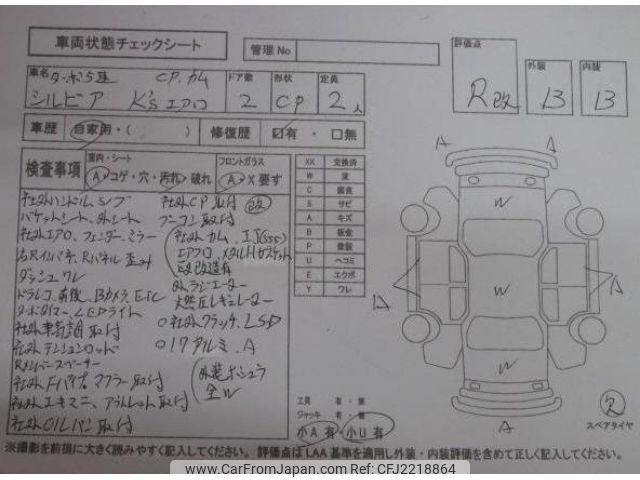 車両状態チェックシート
管理No
評価点
R改
外装
B
内装
B
車名 ターボ5速 CP.カム
シルビア K'sエアロ
ドア数
2
形状
CP
定員
2人
車歴 自家用・( )
修復歴 ☑有・□無
検査事項
室内・シート
A コゲ・穴・汚れ・破れ
フロントガラス
A・X要す
XX 交換済
W 波
C 腐食
S サビ
A キズ
B 板金
P 塗装
U ヘコミ
E エクボ
Y ワレ
社外ハンドル、Sノブ
バケットシート、外シート
社外エアロ、フェンダー、ミラー
右Rインパネ、Rパネル歪み
ダッシュワレ
ドラレコ前後、Bカメラ、ETC
ターボタイマー、LEDライト
社外車高調取付
社外テンションロッド
Rメンバースペーサー
社外Fパイプ、マフラー取付
社外エキマニ、アウトレット取付
社外OILパン取付
社外CP取付 改
ブーコン取付
社外カム、IJ(555)
エアフロ、メタルHガスケット
改改造有
外ラジエーター
燃圧レギュレーター
○社外クラッチ、LSD
○17アルミ.A
外装ボシュラ
全W
工具 有・無
ジャッキ 有・無
小A有 小U有
A
A
W
A
W
A
W
A
欠
スペアタイヤ
※撮影を前提に大きく読みやすく記入してください。 評価点はLAA基準を適用し外装・内装評価を含めて正しく記入してください。
© CarFromJapan.com | ID: CFJ2218864